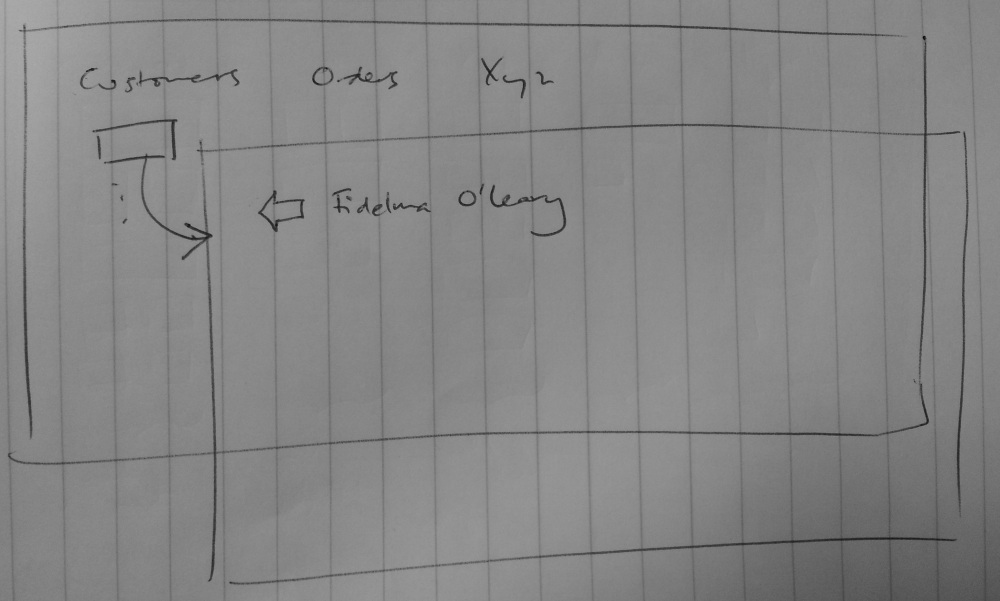 Customers Orders Xyz
Fidelma O'Leary